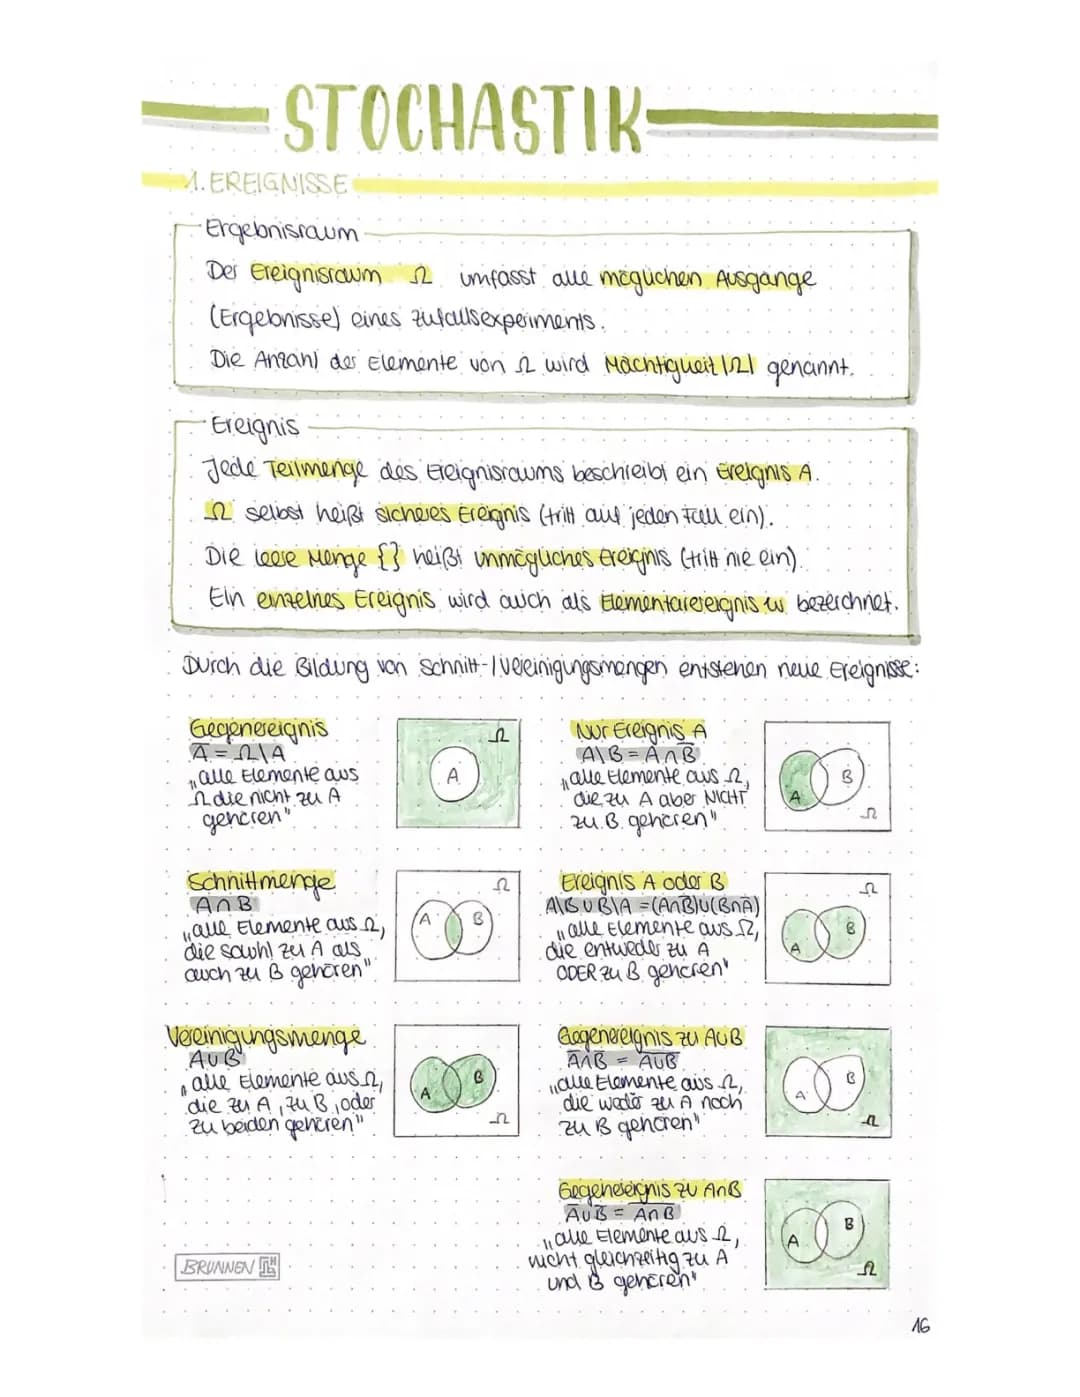 STOCHASTIK
1. EREIGNISSE
Ergebnisraum
Der Ereignisraum Ω umfasst alle möglichen Ausgänge
(Ergebnisse) eines Zufallsexperiments.
Die Anzahl der Elemente von Ω wird Mächtigkeit |Ω| genannt.
Ereignis
Jede Teilmenge des Ereignisraums beschreibt ein Ereignis A.
Ω selbst heißt sicheres Ereignis (tritt auf jeden Fall ein).
Die leere Menge {} heißt unmögliches Ereignis (tritt nie ein).
Ein einzelnes Ereignis wird auch als Elementarereignis ω bezeichnet.
Durch die Bildung von Schnitt-/Vereinigungsmengen entstehen neue Ereignisse:
Gegenereignis
A̅ = Ω\A
„alle Elemente aus
Ω die nicht zu A
gehören"
Ω
A
Nur Ereignis A
A\B = A∩B̅
„alle Elemente aus Ω,
die zu A aber NICHT
zu B gehören"
A
B
Ω
Schnittmenge
A∩B
„alle Elemente aus Ω,
die sowohl zu A als
auch zu B gehören"
Ω
A
B
Ereignis A oder B
A\B∪B\A = (A∩B̅)∪(B∩A̅)
„alle Elemente aus Ω,
die entweder zu A
ODER zu B gehören"
Ω
A
B
Vereinigungsmenge
A∪B
„alle Elemente aus Ω,
die zu A, zu B, oder
zu beiden gehören"
A
B
Ω
Gegenereignis zu A∪B
A̅∩B̅ = A̅∪̅B̅
„alle Elemente aus Ω,
die weder zu A noch
zu B gehören"
A
B
Ω
Gegenereignis zu A∩B
A̅∪B̅ = A̅∩̅B̅
„alle Elemente aus Ω,
nicht gleichzeitig zu A
und B gehören"
A
B
Ω
BRUNNEN
16